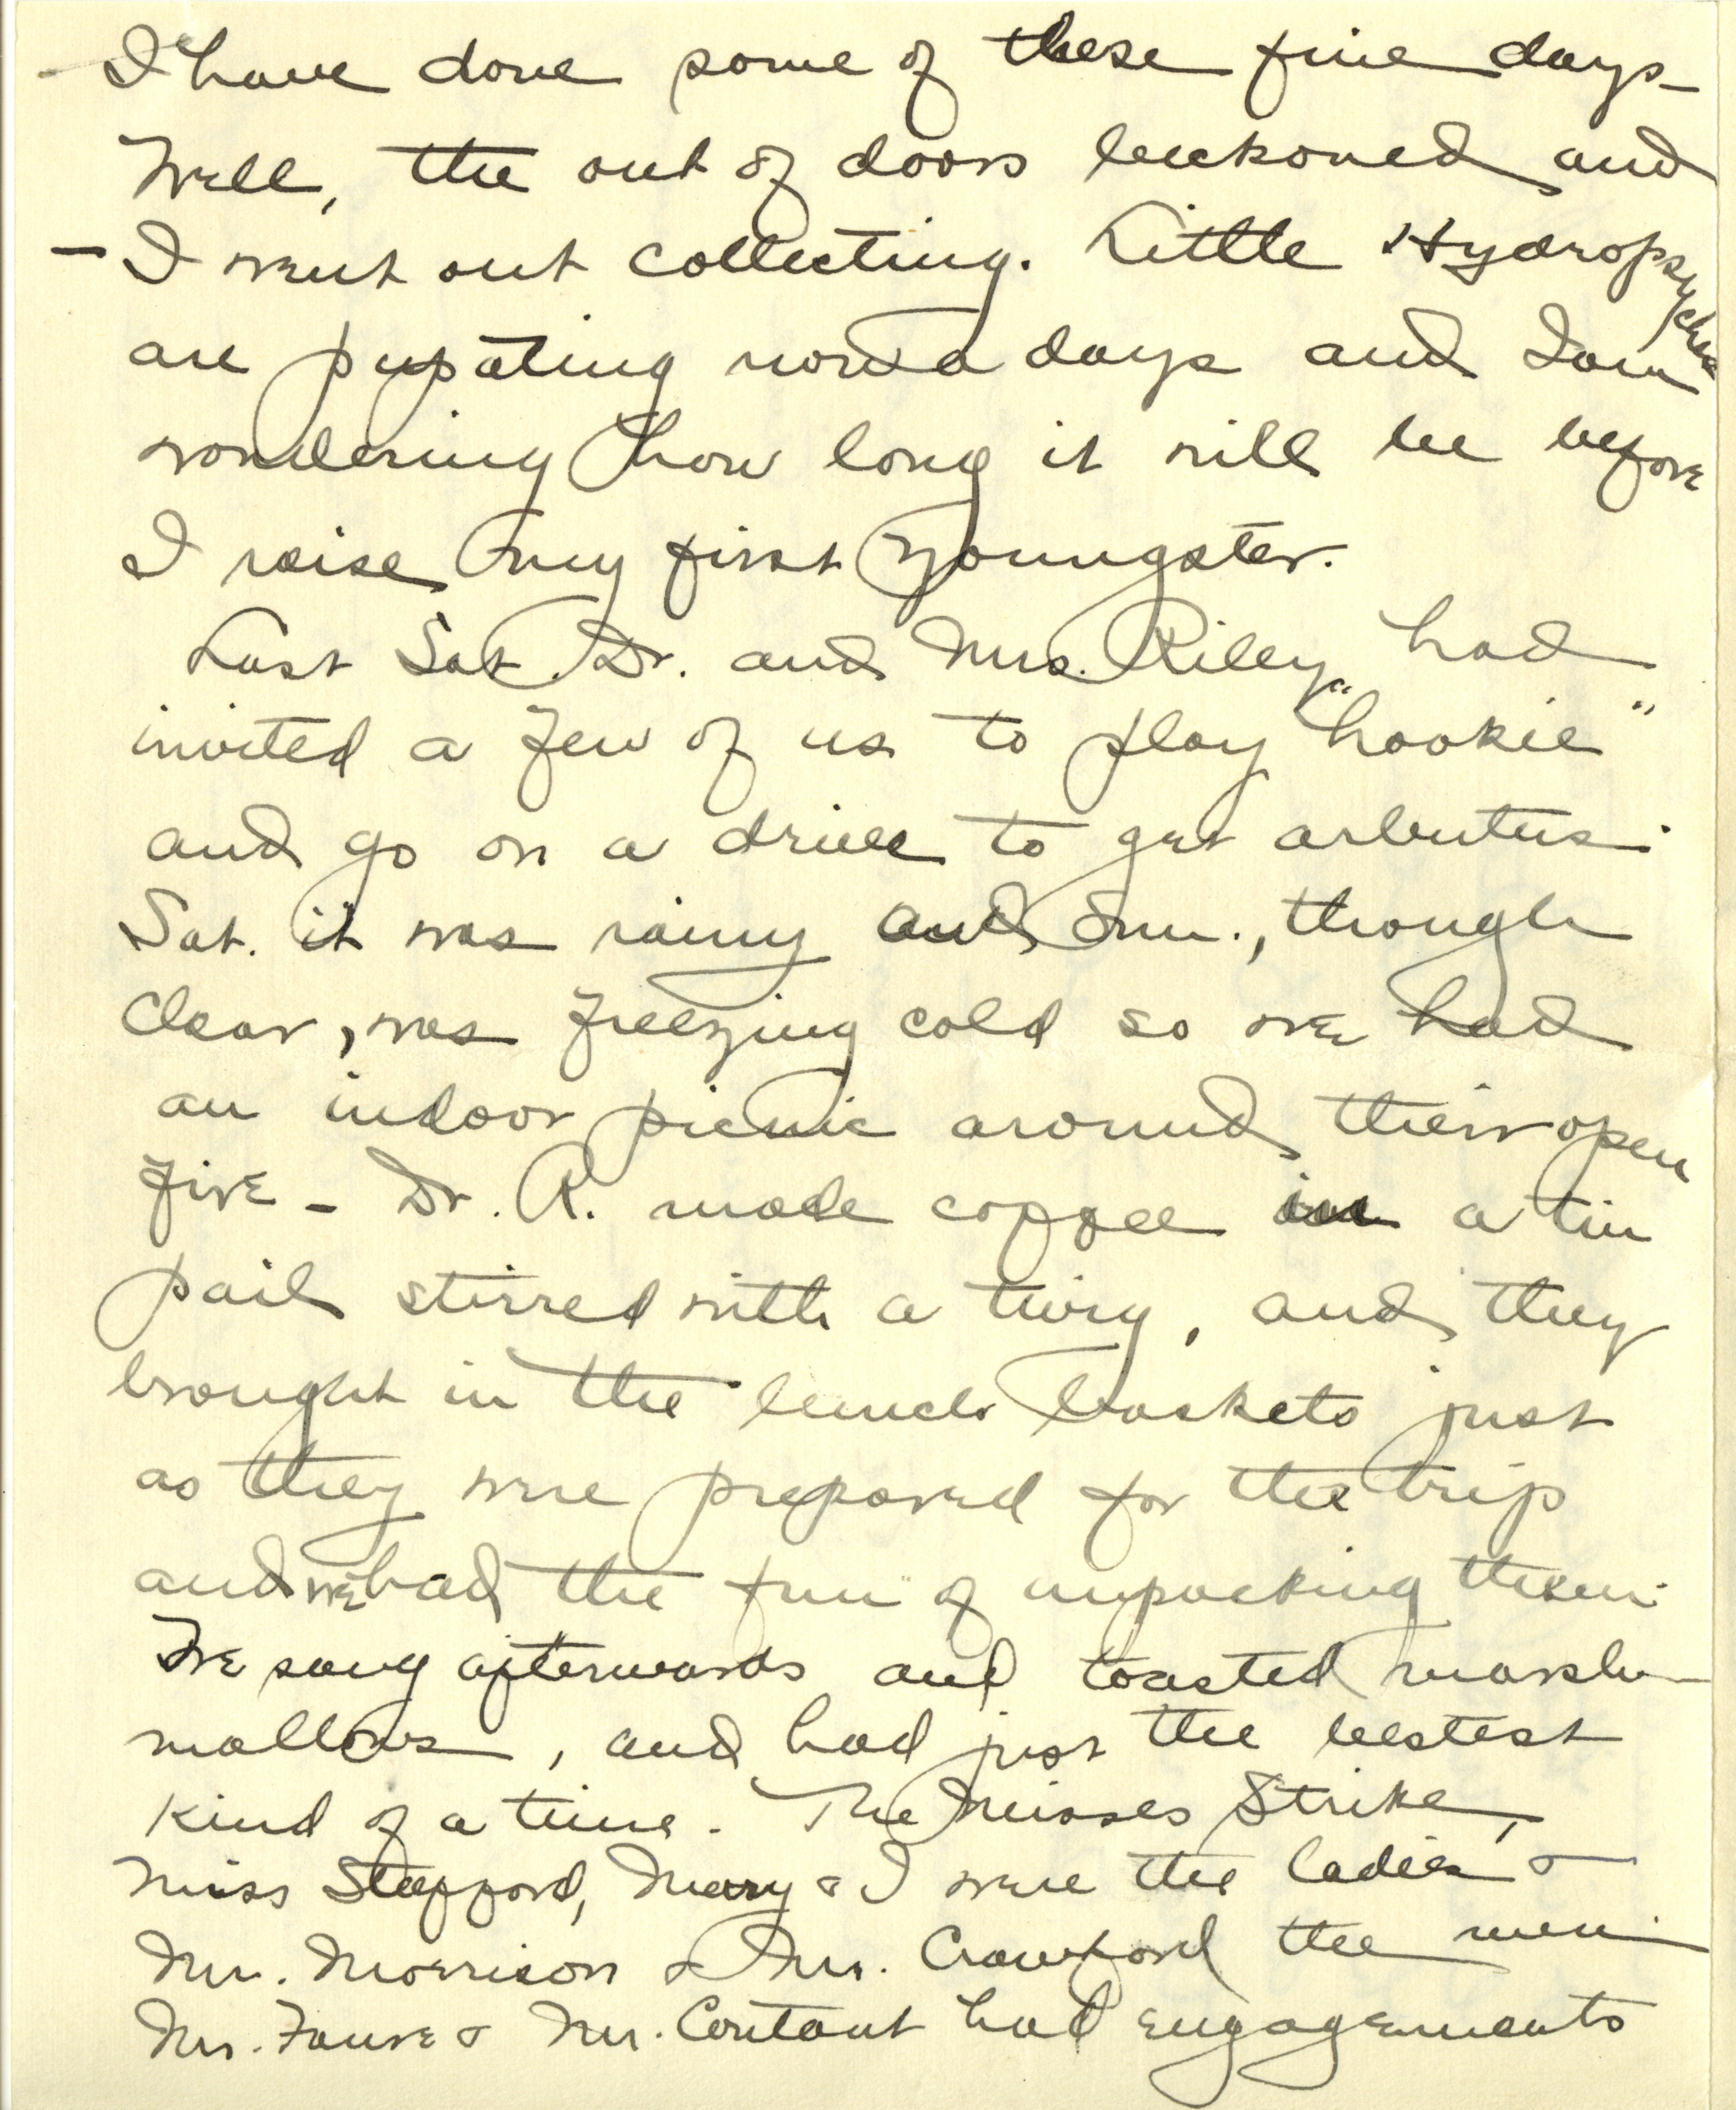 I have done some of these fine days –
Well, the out of doors beckoned and
– I went out collecting. Little Hydropsyches
are pupating now a days and I am
wondering how long it will be before
I raise my first youngster.
Last Sat. Dr. and Mrs. Riley had
invited a few of us to play "hookie"
and go on a drive to get arbutus.
Sat. it was rainy and Sun., though
clear, was freezing cold so we had
an indoor picnic around their open
fire – Dr. R. made coffee in a tin
pail stirred with a twig, and they
brought in the lunch baskets just
as they were prepared for the trip
and we had the fun of unpacking them.
We sang afterwards and toasted marsh-
mallows, and had just the bestest
kind of a time. The Misses Strike,
Miss Stepford, Mary & I were the ladies &
Mr. Morrison & Mr. Crawford the men.
Mr. & Mr. had engagements